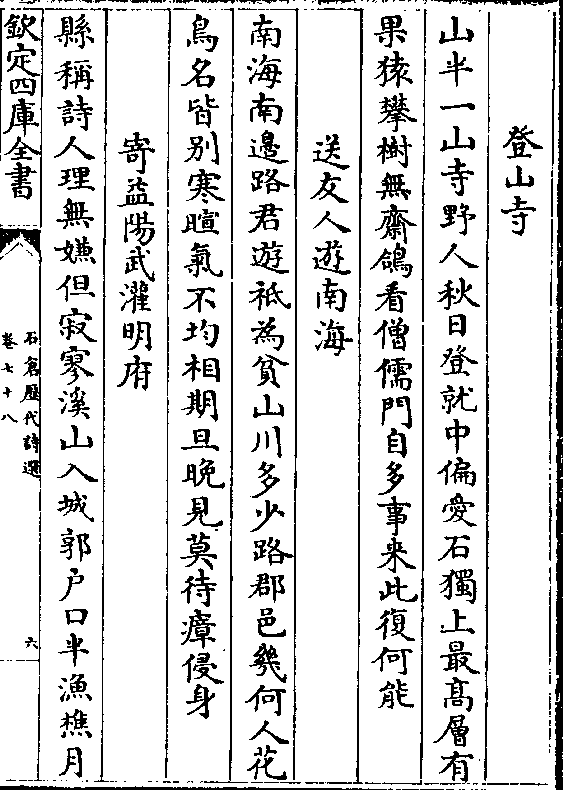 登山寺
山半一山寺野人秋日登就中偏愛石獨上最高層有
果猿攀樹無齋鴿看僧儒門自多事来此復何能
送友人遊南海
南海南邉路君遊祗為貧山川多少路郡邑幾何人花
鳥名皆别寒暄氣不均相期旦晩見莫待瘴侵身
寄益陽武灌明府
縣稱詩人理無嫌但寂寥溪山入城郭户口半漁樵月
欽定四庫全書
石倉歴代詩選
卷七十八
六